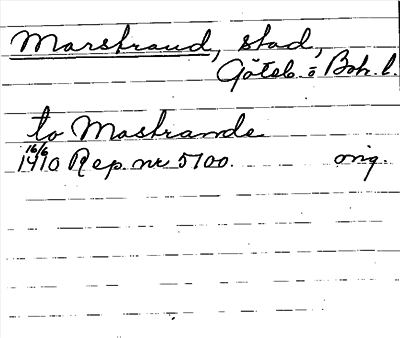 Marstrand, stad,
Göteb. o Boh. l.
to Mastrande
16/6
1410 Rep. nr 5100. orig.